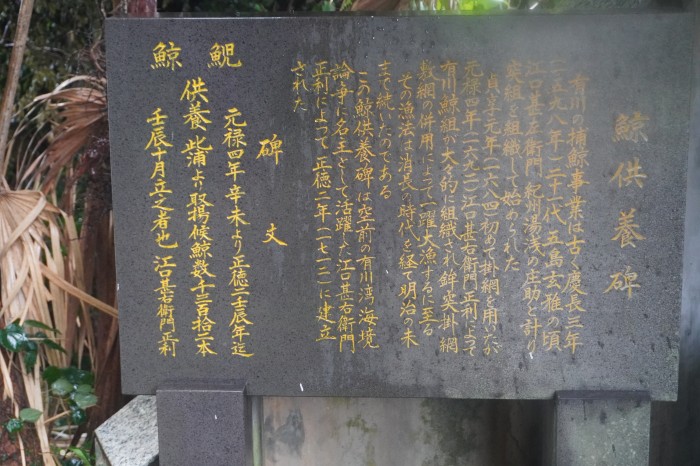 鯨供養碑
有川の捕鯨事業は古く慶長三年
(一五九八年)二十一代 五島玄雅の頃
江口甚左衛門 紀州湯浅の庄助と計り
突組を組織して始められた
貞享元年(一六八四)初めて掛網を用たが
元禄四年(一六九一)江口甚右衛門正利によって
有川鯨組が大々的に組織され鉾突掛網
数網の併用によって一躍大漁するに至る
その漁法は消長の時代を経て明治の末
まで続いたのである
この鯨供養碑は空前の有川湾海境
論争に名主として活躍した江口甚右衛門
正利によって 正徳二年(一七一二)に建立
された
碑文
元禄四年辛未より正徳二壬辰年迄
鯢 供養 此浦より取揚候鯨数千三百拾二本
鯨 壬辰十月立之者也 江口甚右衛門正利